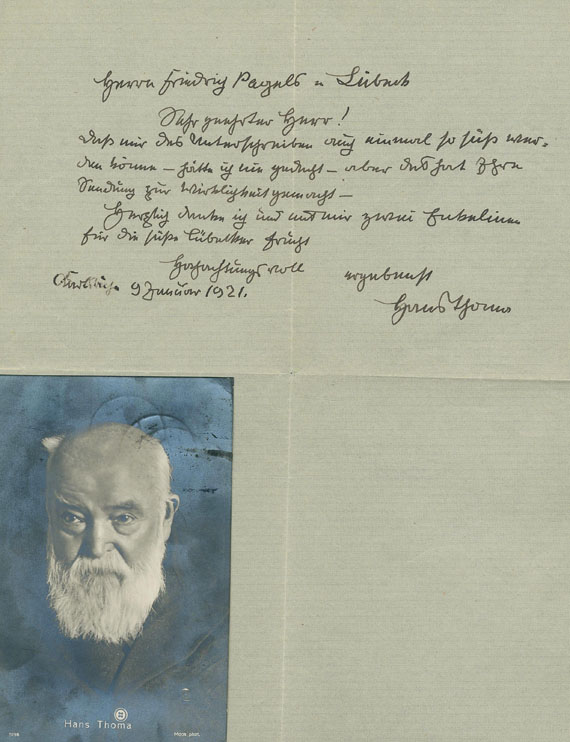 Herrn Friedrich Pagels in Lübeck
Sehr geehrter Herr!
Daß mir das Unterschreiben auch einmal so süß wer-
den könne – hätte ich nie gedacht – aber das hat Ihre
Sendung zur Wirklichkeit gemacht –
Herzlich danke ich und mit mir zwei Enkelinen
für die süße Lübecker Frucht
Hochachtungsvoll ergebenst
Karlsruhe 9 Januar 1921.
Hans Thoma
Hans Thoma